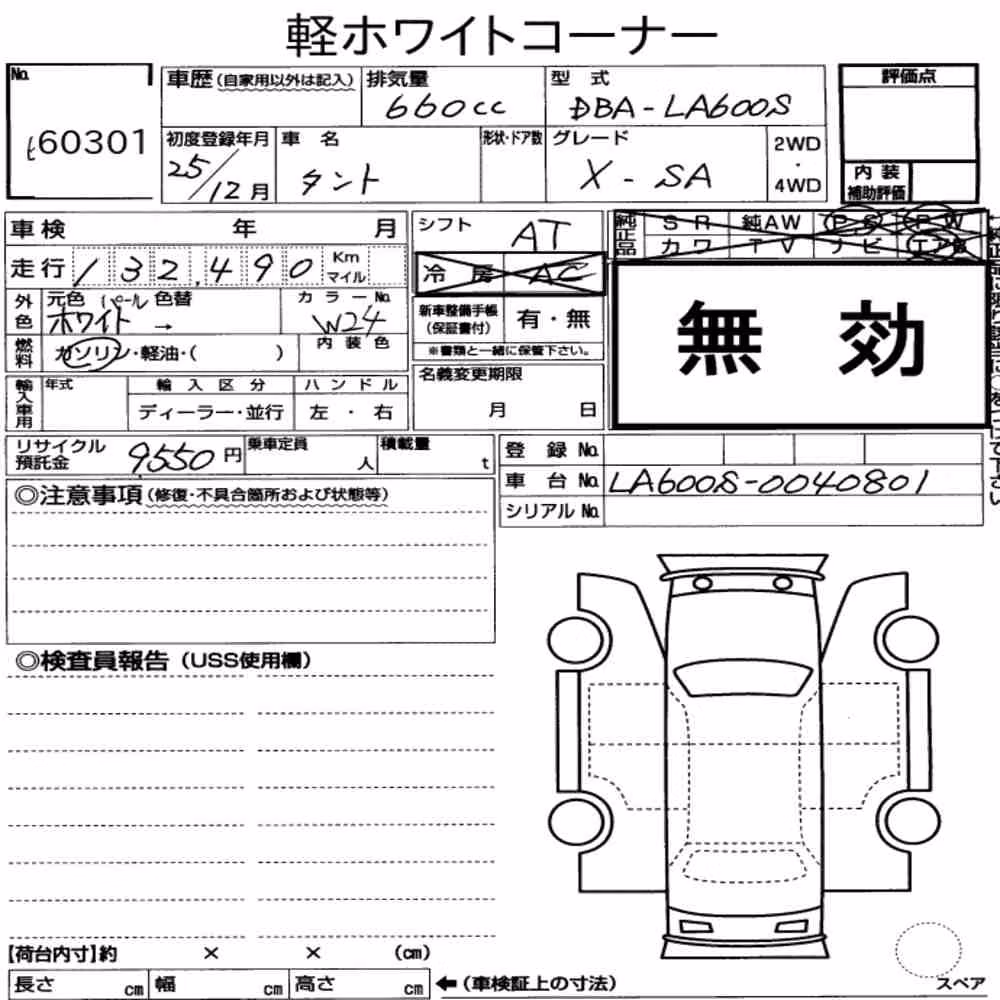 軽ホワイトコーナー
No.
60301
車歴(自家用以外は記入)
排気量
660cc
型 式
DBA-LA600S
評価点
初度登録年月
25/12月
車 名
タント
形状・ドア数
グレード
X - SA
2WD
・
4WD
内 装
補助評価
車検 年 月
シフト
AT
純正品
S R 純AW P.S P.W
カワ TV ナビ エアB
走行 132,490 Km マイル
冷 房 AC
外色
元色 パール 色替
ホワイト →
カラーNo.
W24
新車整備手帳
(保証書付)
有・無
※書類と一緒に保管下さい。
無 効
燃料
ガソリン・軽油・( )
内 装 色
輸入車用
年式
輸 入 区 分
ディーラー・並行
ハ ン ド ル
左 ・ 右
名義変更期限
月 日
リサイクル
預託金
9550 円
乗車定員
人
積載量
t
登 録 No.
車 台 No. LA600S-0040801
シリアル No.
◎注意事項(修復・不具合箇所および状態等)
◎検査員報告(USS使用欄)
【荷台内寸】約 × × (cm)
長さ cm 幅 cm 高さ cm
←(車検証上の寸法)
スペア